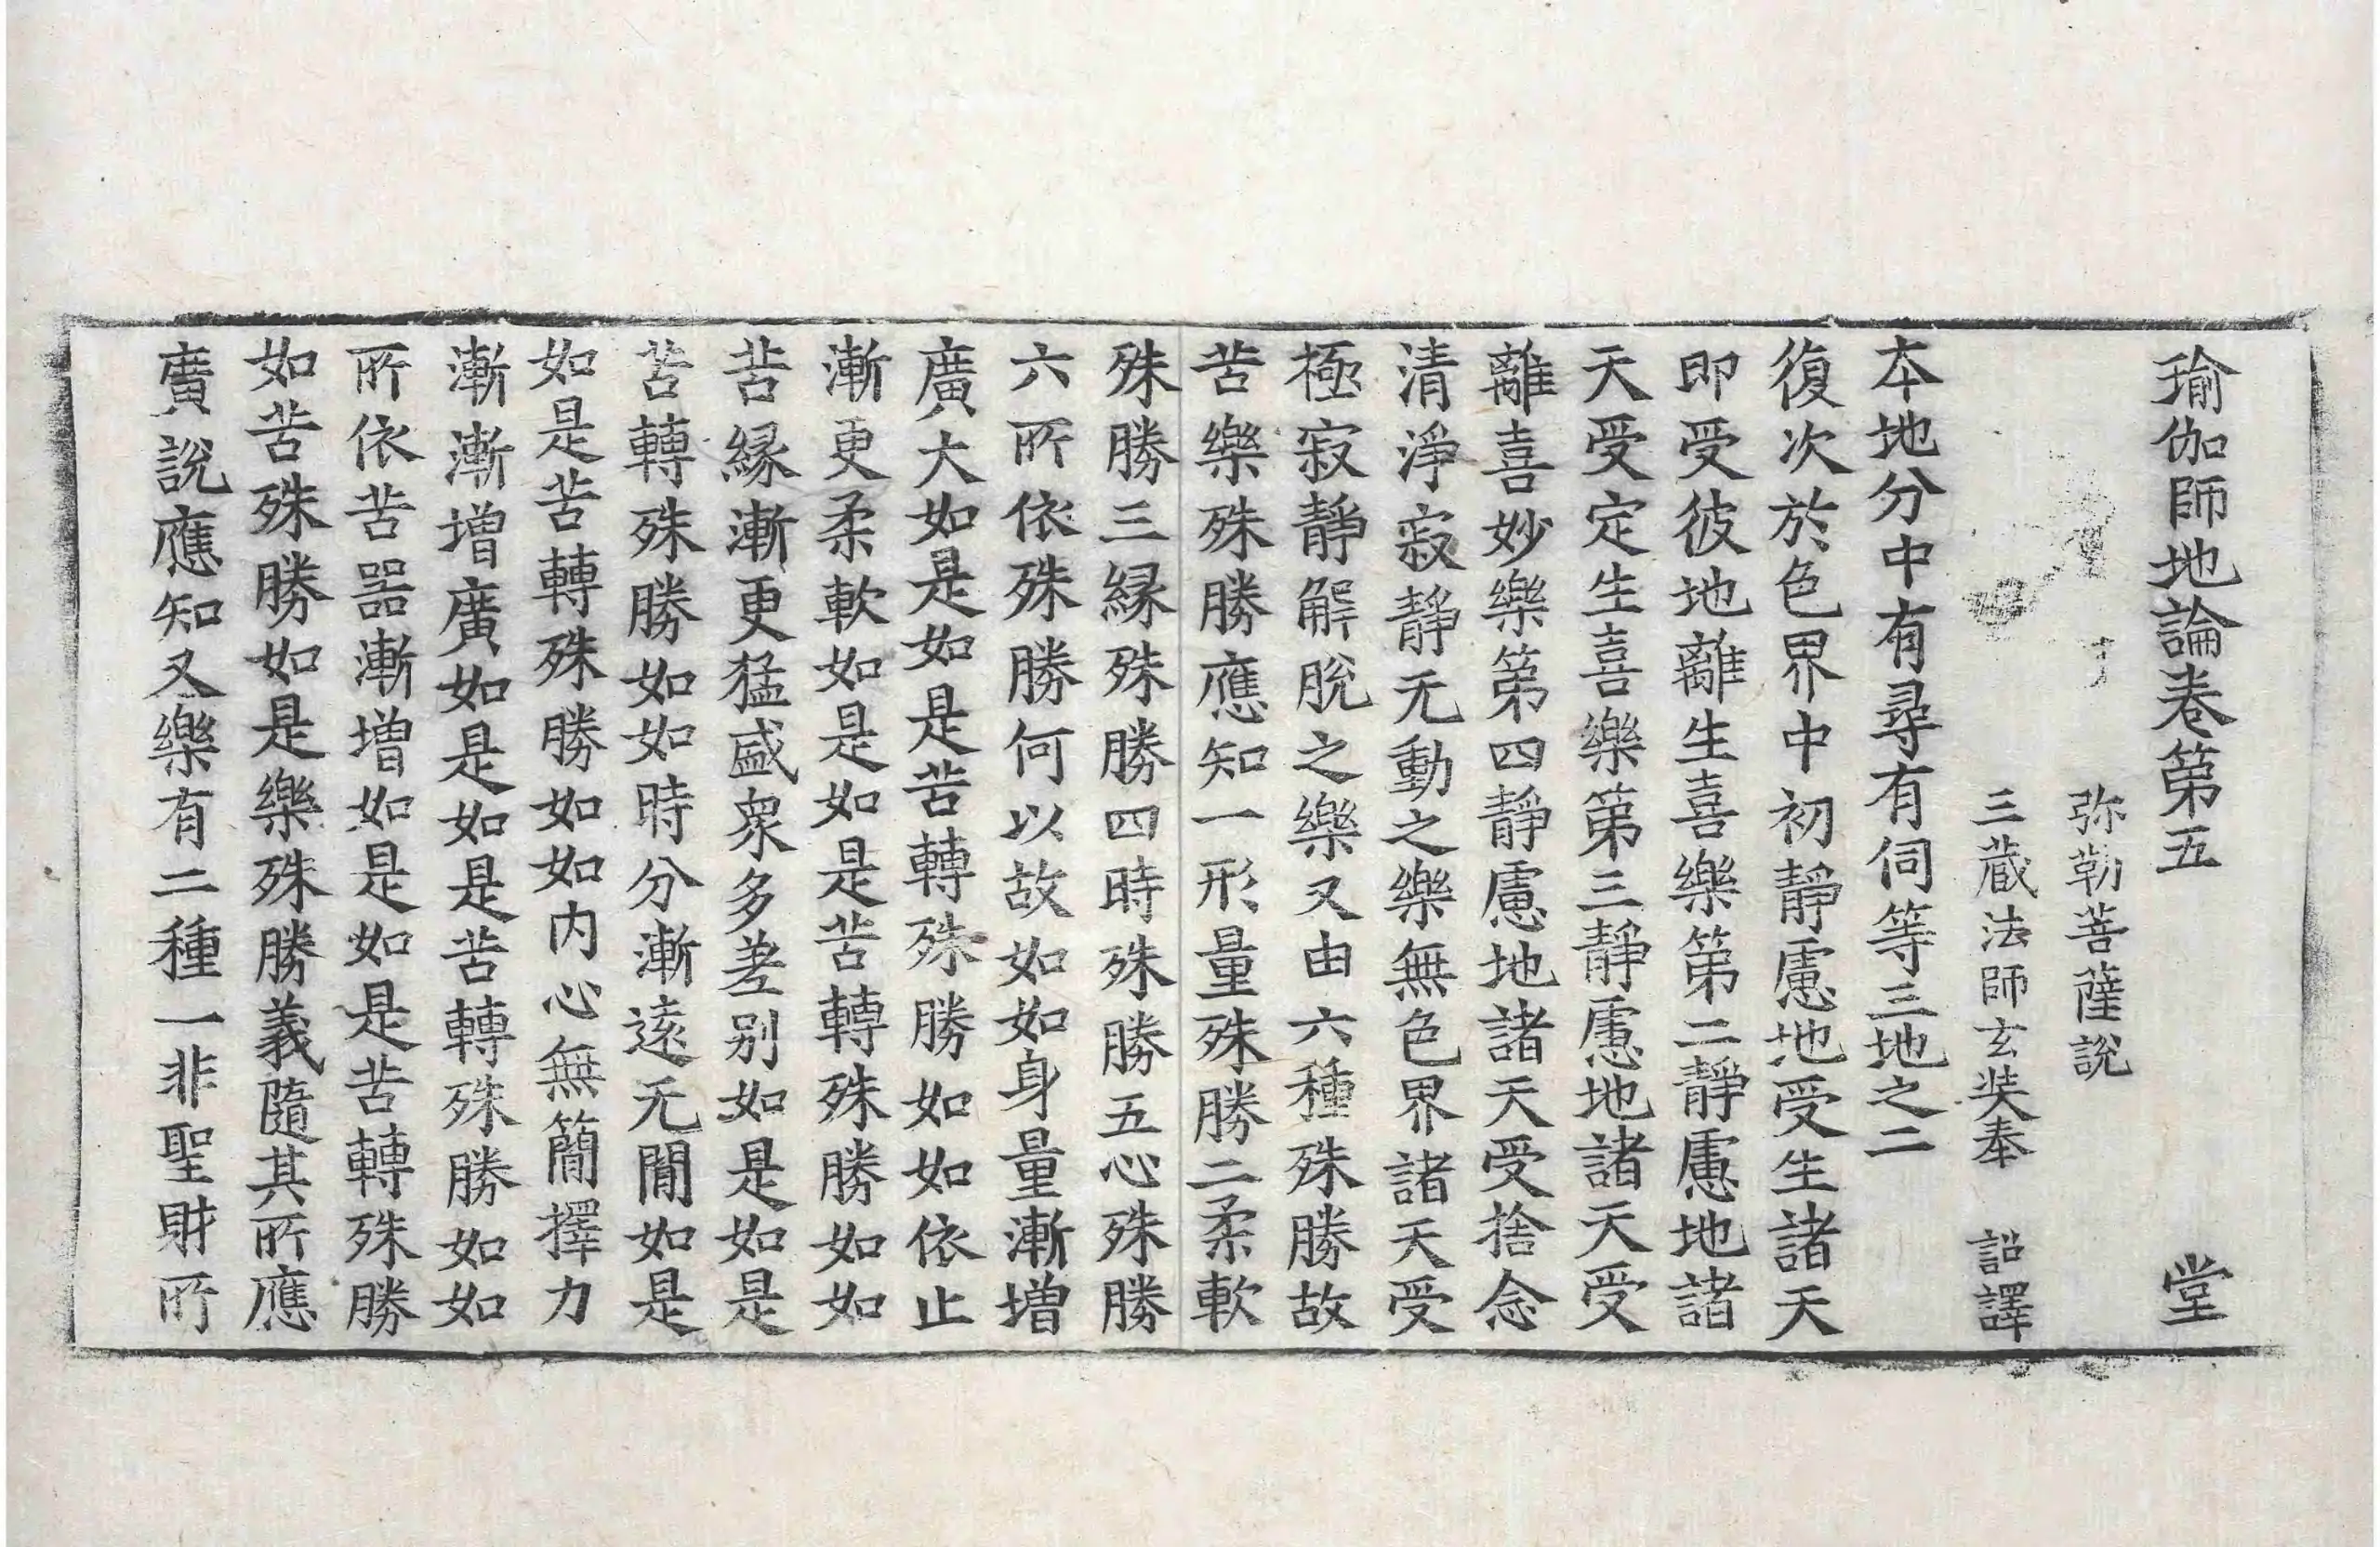 瑜伽師地論卷第五　堂
弥勒菩薩說
三藏法師玄奘奉　詔譯
本地分中有尋有伺等三地之二
復次於色界中初靜慮地受生諸天
即受彼地離生喜樂第二靜慮地諸
天受定生喜樂第三靜慮地諸天受
離喜妙樂第四靜慮地諸天受捨念
清淨寂靜无動之樂無色界諸天受
極寂靜解脫之樂又由六種殊勝故
苦樂殊勝應知一形量殊勝二柔軟
殊勝三緣殊勝四時殊勝五心殊勝
六所依殊勝何以故如如身量漸增
廣大如是如是苦轉殊勝如如依止
漸更柔軟如是如是苦轉殊勝如如
苦緣漸更猛盛衆多差別如是如是
苦轉殊勝如如時分漸遠无間如是
如是苦轉殊勝如如內心無簡擇力
漸漸增廣如是如是苦轉殊勝如如
所依苦器漸增如是如是苦轉殊勝
如苦殊勝如是樂殊勝義隨其所應
廣說應知又樂有二種一非聖財所